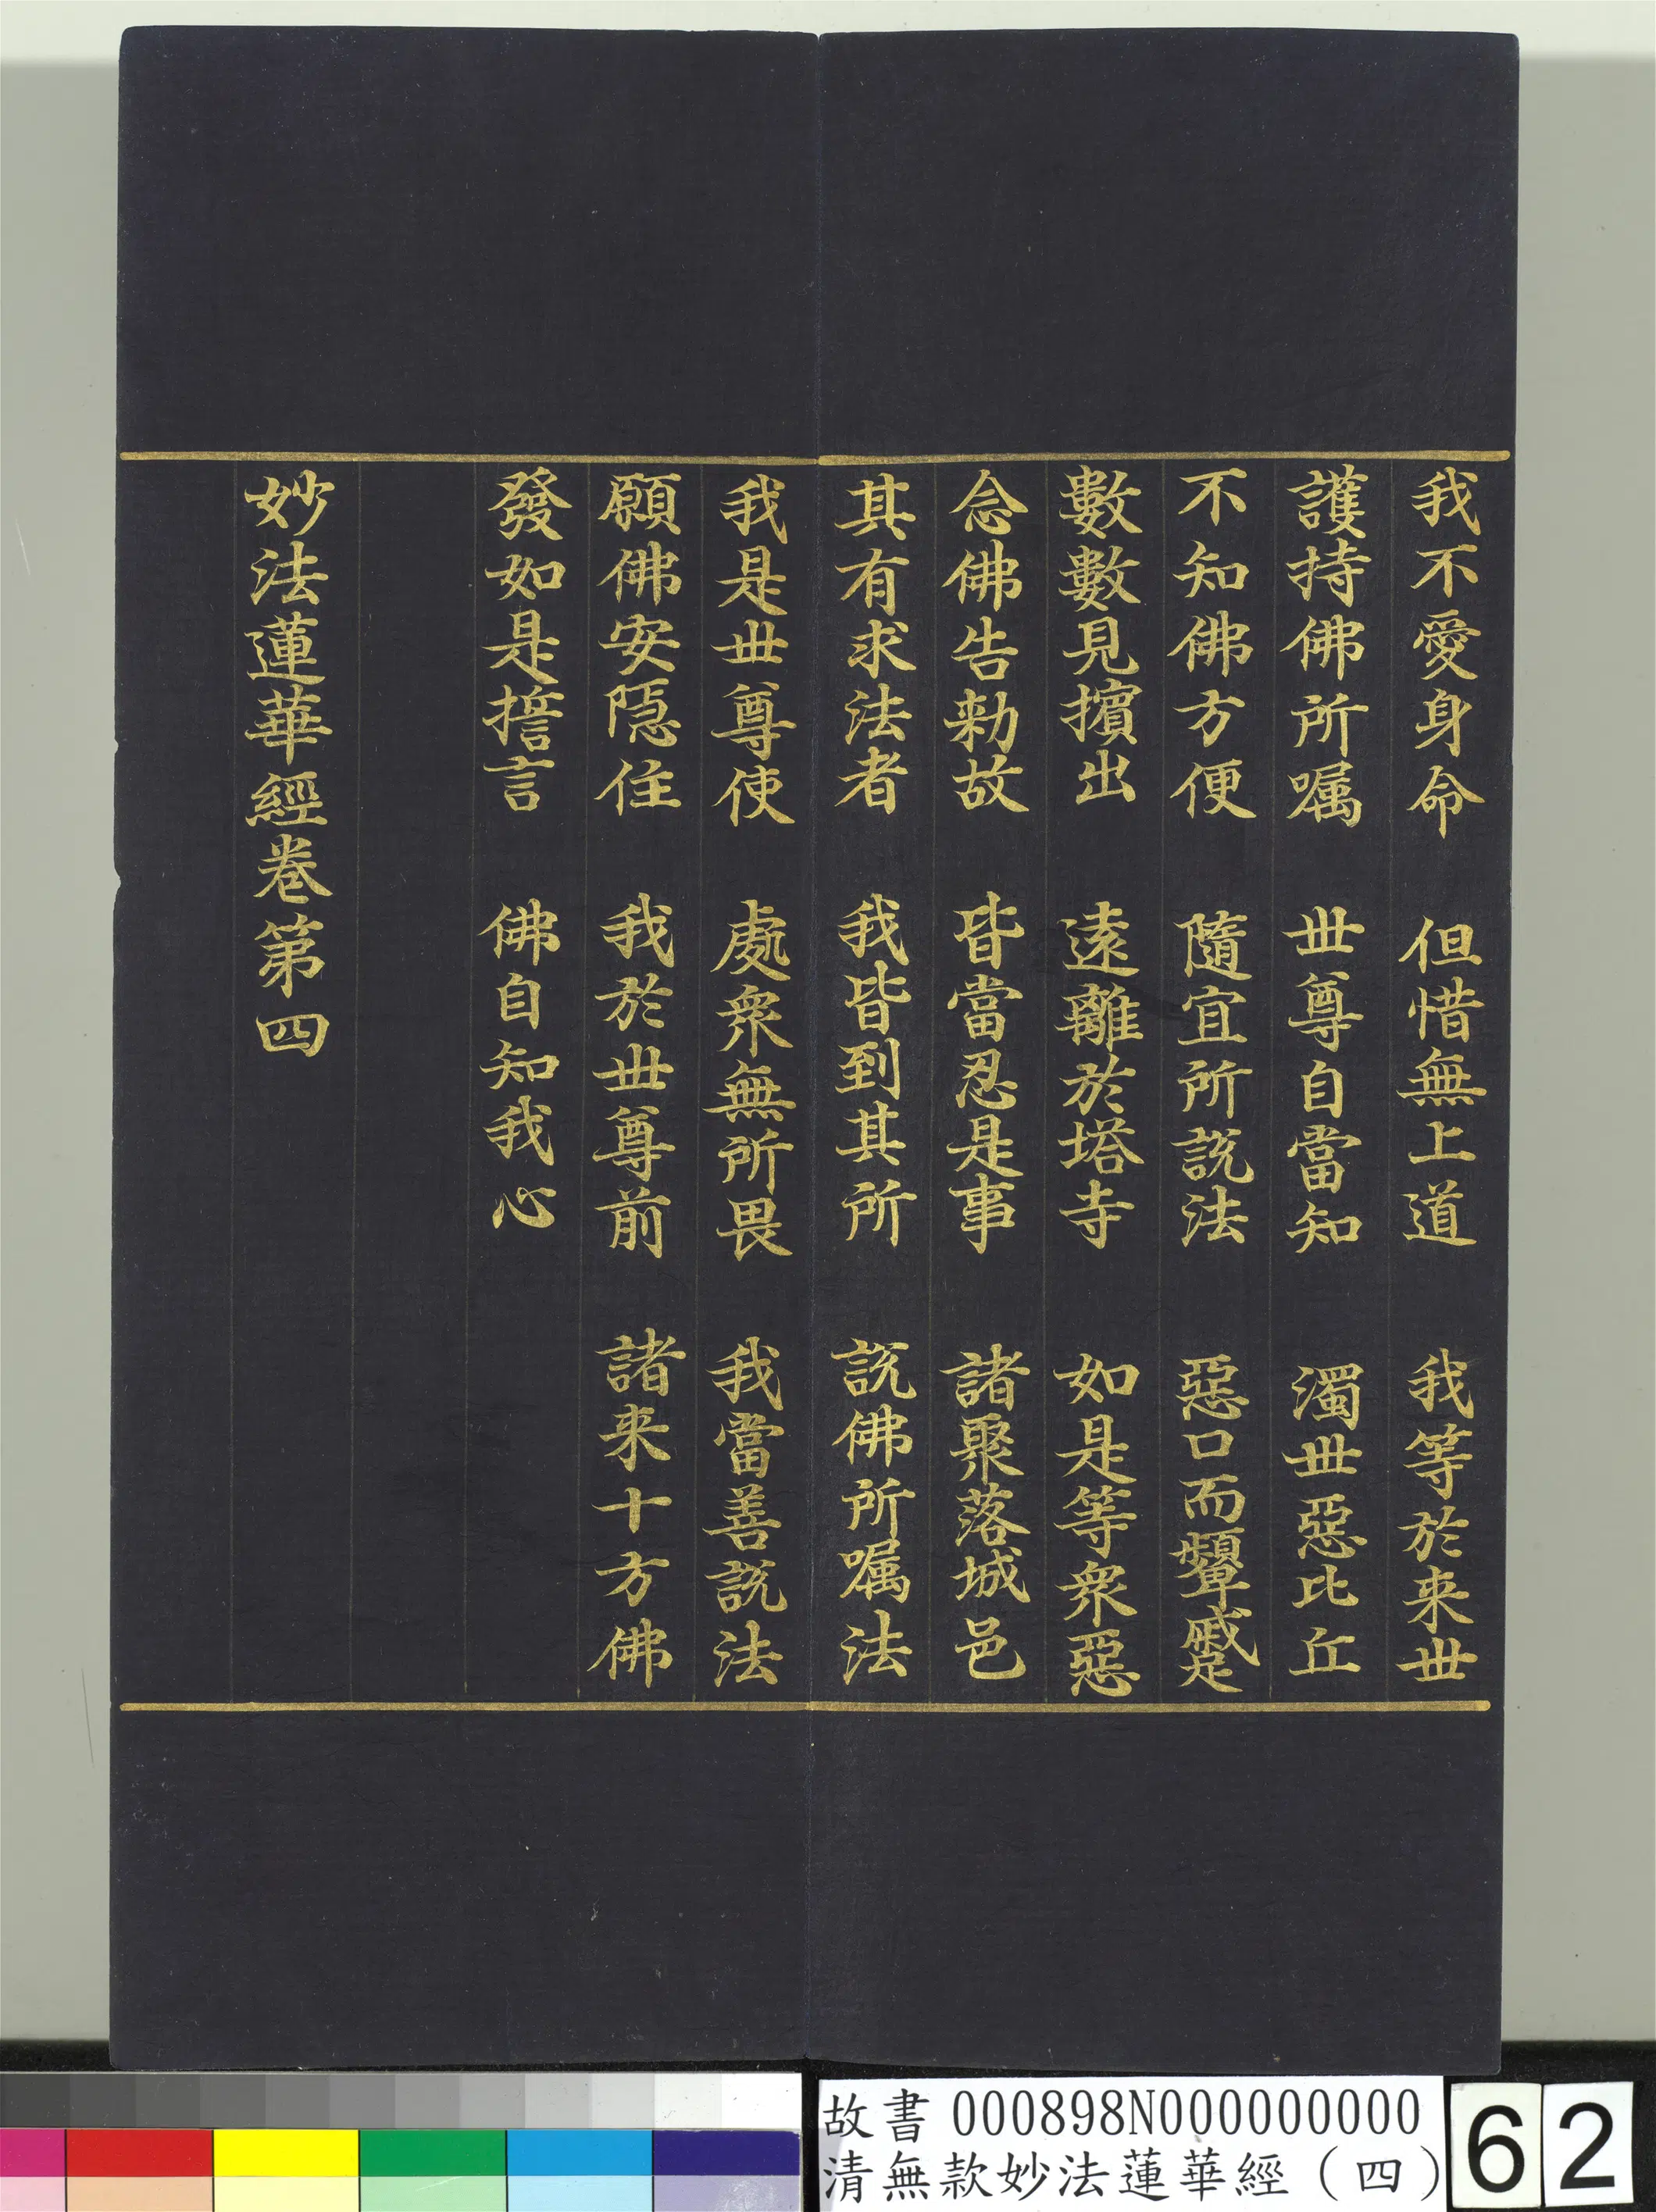 我不愛身命　但惜無上道　我等於来世
護持佛所嘱　世尊自當知　濁世惡比丘
不知佛方便　隨宜所說法　惡口而顰蹙
數數見擯出　遠離於塔寺　如是等眾惡
念佛告勅故　皆當忍是事　諸聚落城邑
其有求法者　我皆到其所　說佛所嘱法
我是世尊使　處眾無所畏　我當善說法
願佛安隱住　我於世尊前　諸来十方佛
發如是誓言　佛自知我心
妙法蓮華經卷第四
故書 000898N000000000
清無款妙法蓮華經（四）
62